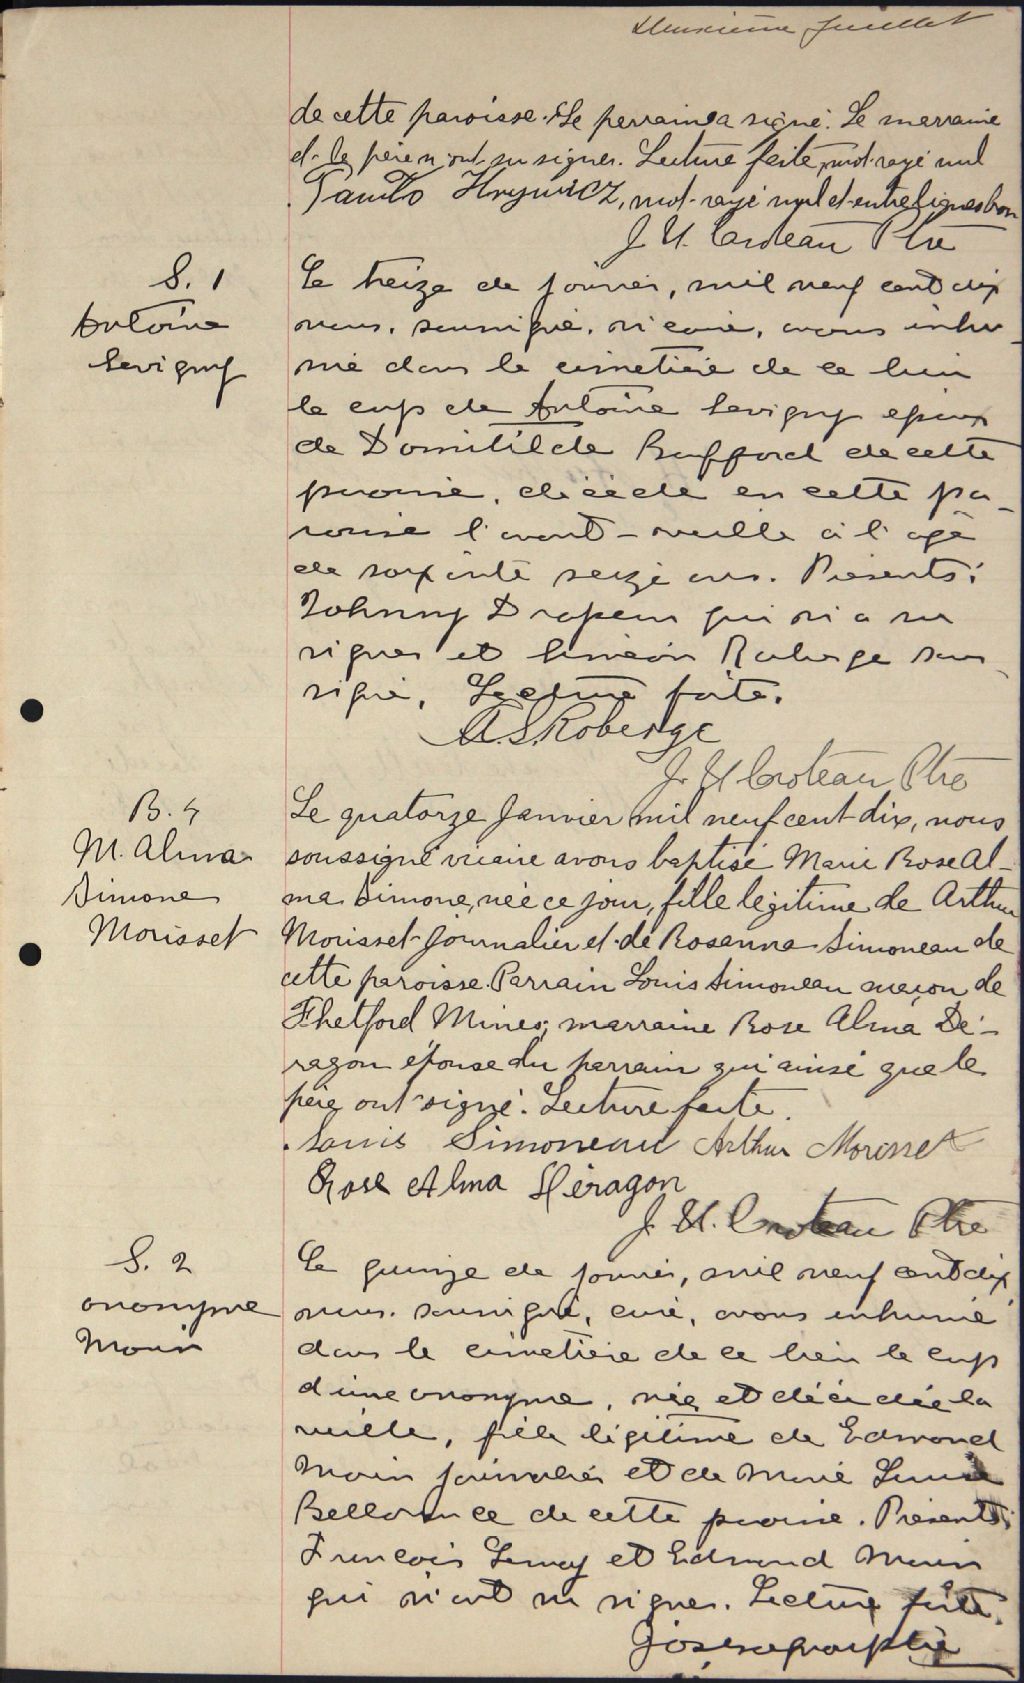 Deuxième feuillet
de cette paroisse. Le parrain a signé. Le marraine
et le père n'ont su signer. Lecture faite, mot rayé nul
Hrynwicz, mot rayé nul et entrelignes bon
J. U. Croteau Ptre
S. 1
Antoine
Sevigny
Le treize de janvier, mil neuf cent dix
nous, soussigné, vicaire, avons inhu-
mé dans le cimetière de ce lieu
le corps de Antoine Sevigny époux
de Domitilde Bufford de cette
paroisse, décédé en cette pa-
roisse l'avant-veille à l'age
de soixante seize ans. Présents:
Johnny Drapeau qui n'a su
signer et Siméon Roberge sous-
signé. Lecture faite.
A. S. Roberge
J. U. Croteau Ptre
B. 4
M. Alma
Simone
Morisset
Le quatorze Janvier mil neuf cent dix, nous
soussigné vicaire avons baptisé Marie Rose Al-
ma Simone, née ce jour, fille légitime de Arthur
Morisset journalier et de Rosanna Simoneau de
cette paroisse. Parrain Louis Simoneau maçon de
Thetford Mines; marraine Rose Alma Dé-
ragon épouse du parrain qui ainsi que le
père ont signé. Lecture faite.
Louis Simoneau Arthur Morisset
Rose Alma Déragon
J. U. Croteau Ptre
S. 2
anonyme
Morin
Le quinze de janvier, mil neuf cent dix
nous, soussigné, curé, avons inhumé
dans le cimetière de ce lieu le corps
d'une anonyme, née et décédée la
veille, fille légitime de Edmond
Morin journalier et de Marie Louise
Bellavance de cette paroisse. Présents:
François Lemay et Edmond Morin
qui n'ont su signer. Lecture faite.